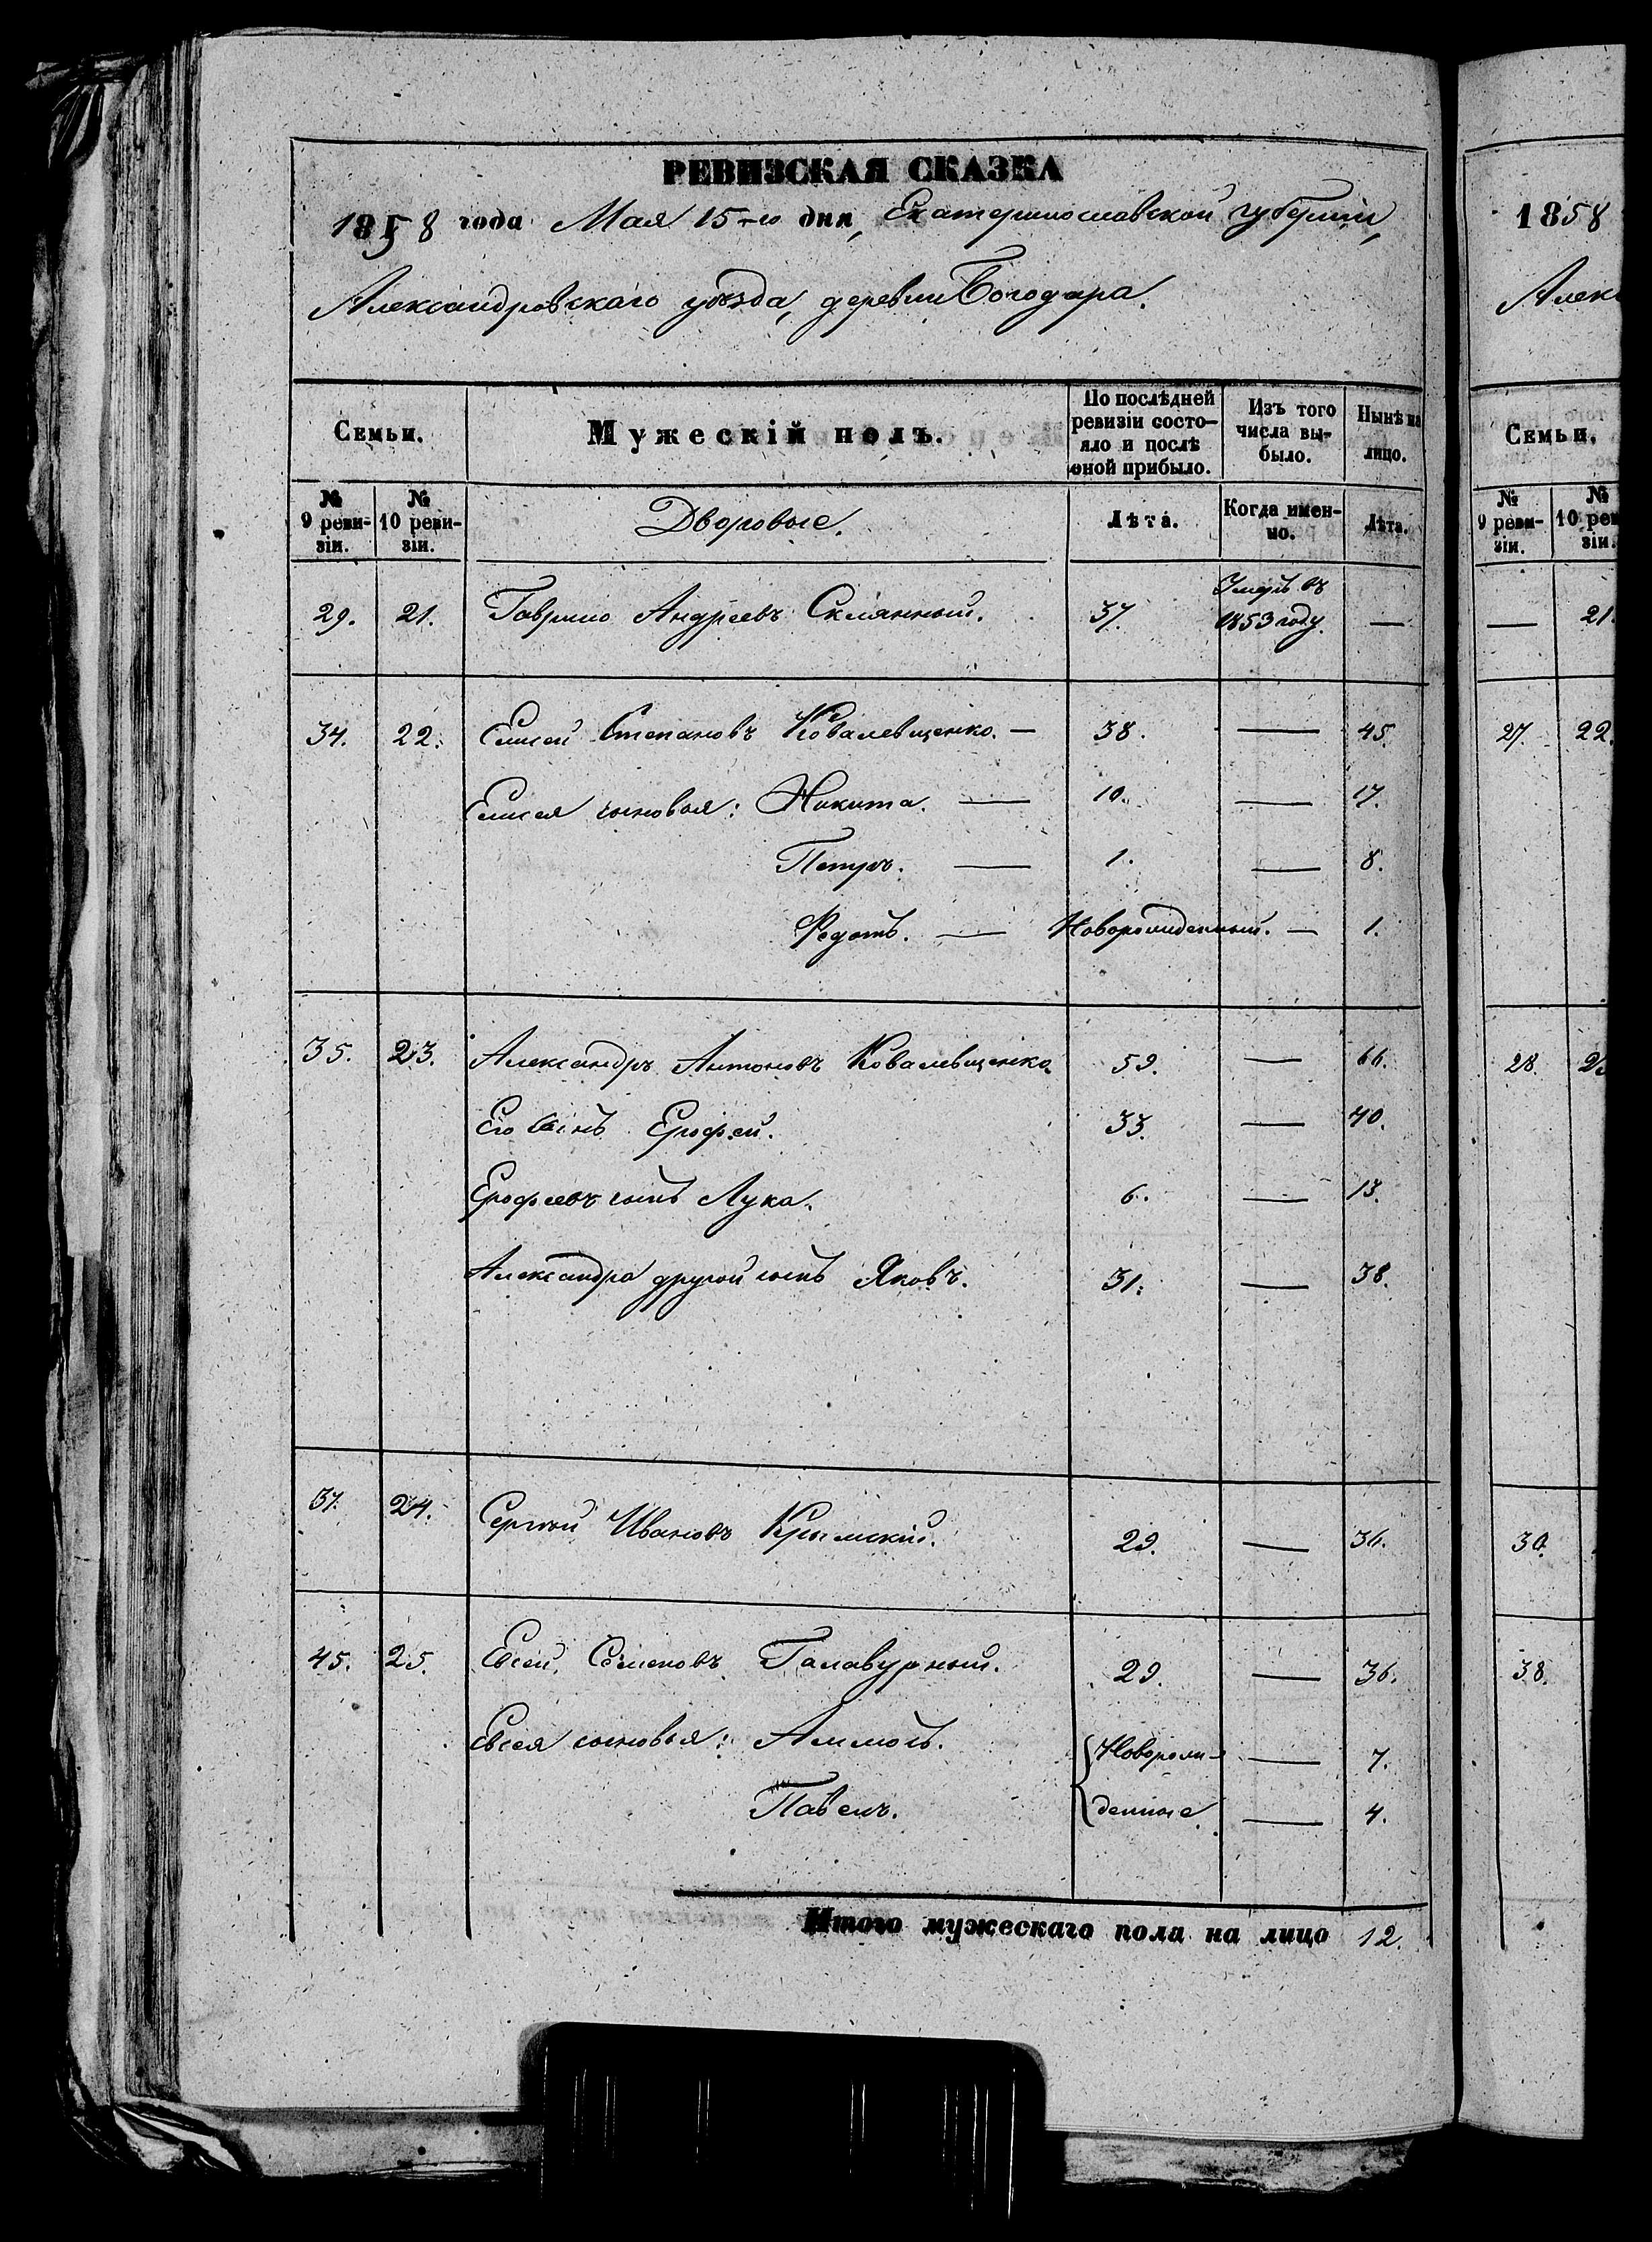 РЕВИЗСКАЯ СКАЗКА
1858 года Мая 15-го дня, Екатеринославской губернии,
Александровскаго уѣзда, деревни Богодара.
Семьи. Мужескій полъ. По послѣдней ревизіи состояло и послѣ оной прибыло. Изъ того числа выбыло. Нынѣ на лицо.
№ 9 ревизіи. № 10 ревизіи. Дворовые. Лѣта. Когда именно. Лѣта.
29. 21. Гаврило Андреевъ Склянный. 37. Умеръ въ 1853 году. —
34. 22. Елисей Степановъ Ковалевщенко. — 38. — 45.
Елисея сыновья: Никита. — 10. — 17.
Петръ. — 1. — 8.
Федотъ. — Новорожденный. — 1.
35. 23. Александръ Антоновъ Ковалевщенко. 59. — 66.
Его сынъ Ерофей. 33. — 40.
Ерофеевъ сынъ Лука. 6. — 13.
Александра другой сынъ Яковъ. 31. — 38.
37. 24. Сергѣй Ивановъ Крымскій. 29. — 36.
45. 25. Евсей Семеновъ Галабурный. 29. — 36.
Евсея сыновья: Аммосъ. Новорож- — 7.
Павелъ. денные. — 4.
Итого мужескаго пола на лицо 12.
1858
Алек
Семьи.
№ 9 ревизіи. № 10 рев зіи.
— 21.
27. 22.
28.
30.
38.